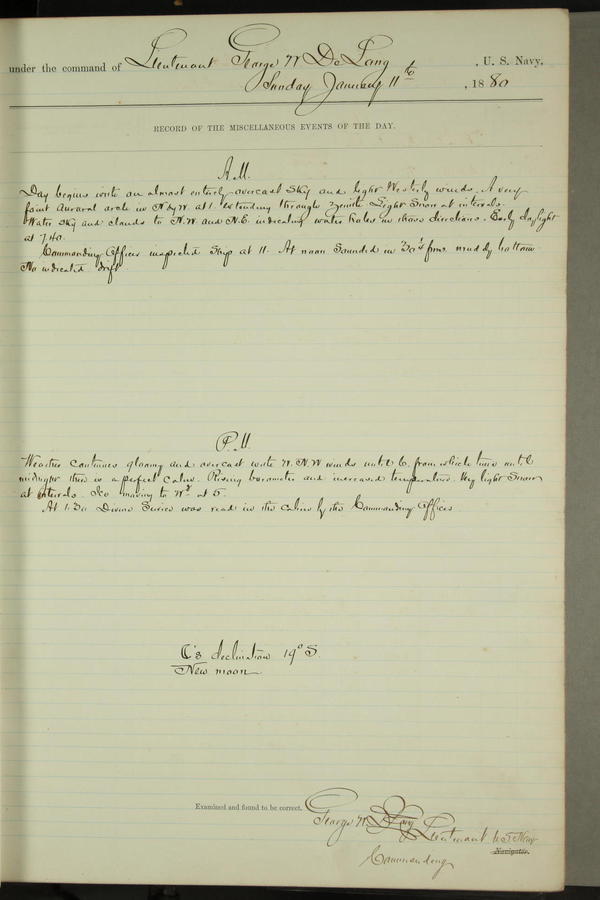 under the command of Lieutenant George W De Long , U. S. Navy,
Sunday January 11th , 1880
RECORD OF THE MISCELLANEOUS EVENTS OF THE DAY.
A.M.
Day begins with an almost entirely overcast sky and light Westerly winds. A very
faint Auroral arch in N by W. at 1. extending through zenith. Light Snow at intervals.
Water sky and clouds to N.W. and N.E. indicating water holes in those directions. Early daylight
at 7.40.
Commanding Officer inspected Ship at 11. At noon Sounded in 30½ fms. muddy bottom
No indicated drift.
P.M.
Weather continues gloomy and overcast with W.N.W winds until 6. from which time until
midnight there is a perfect calm. Rising barometer and increased temperature. Very light Snow
at intervals. Ice moving to Wd at 5.
At 1.30 Divine Service was read in the cabin by the Commanding Officer.
☾'s declination 19° S.
New moon
Examined and found to be correct.
George W. De Long Lieutenant U.S. Navy
Navigator.
Commanding